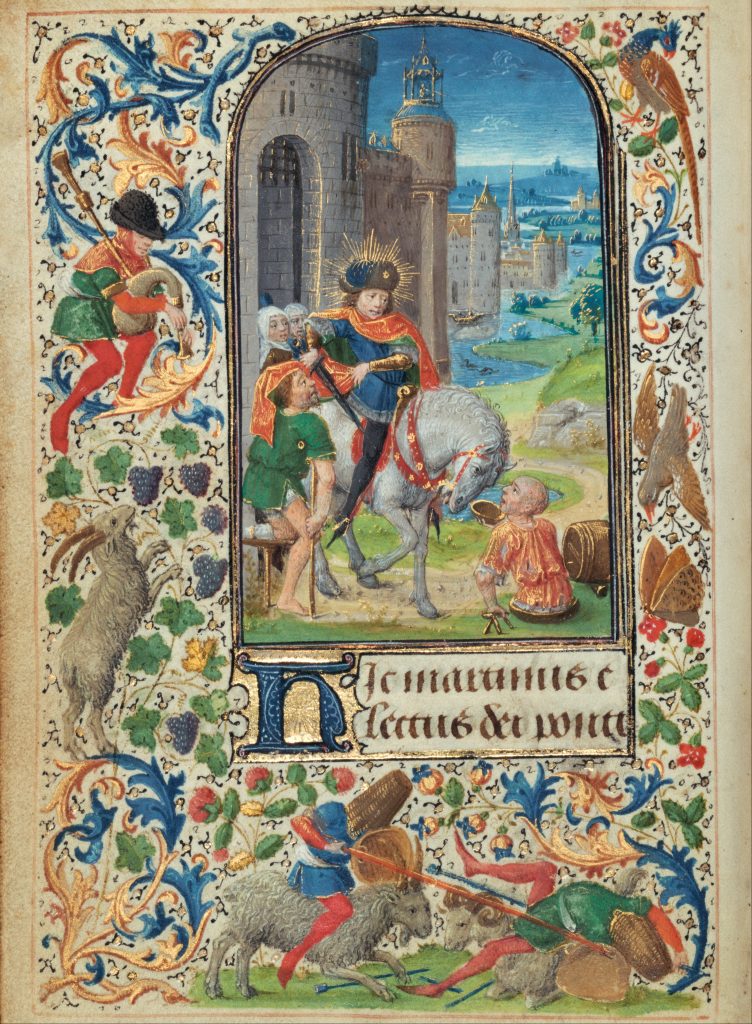 HIc martinus e
lectus dei ponti